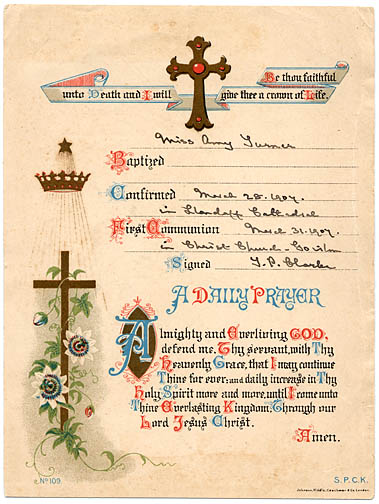 Be thou faithful
unto Death and I will give thee a crown of Life.
Miss Amy Turner
Baptized
Confirmed March 28. 1907.
in Llandaff Cathedral
First Communion March 31. 1907.
in Christ Church
Signed
A DAILY PRAYER
Almighty and Everliving GOD,
defend me, Thy servant, with Thy
Heavenly Grace, that I may continue
Thine for ever: and daily increase in Thy
Holy Spirit more and more, until I come unto
Thine Everlasting Kingdom; Through our
Lord Jesus Christ.
Amen.
No 109
S.P.C.K.